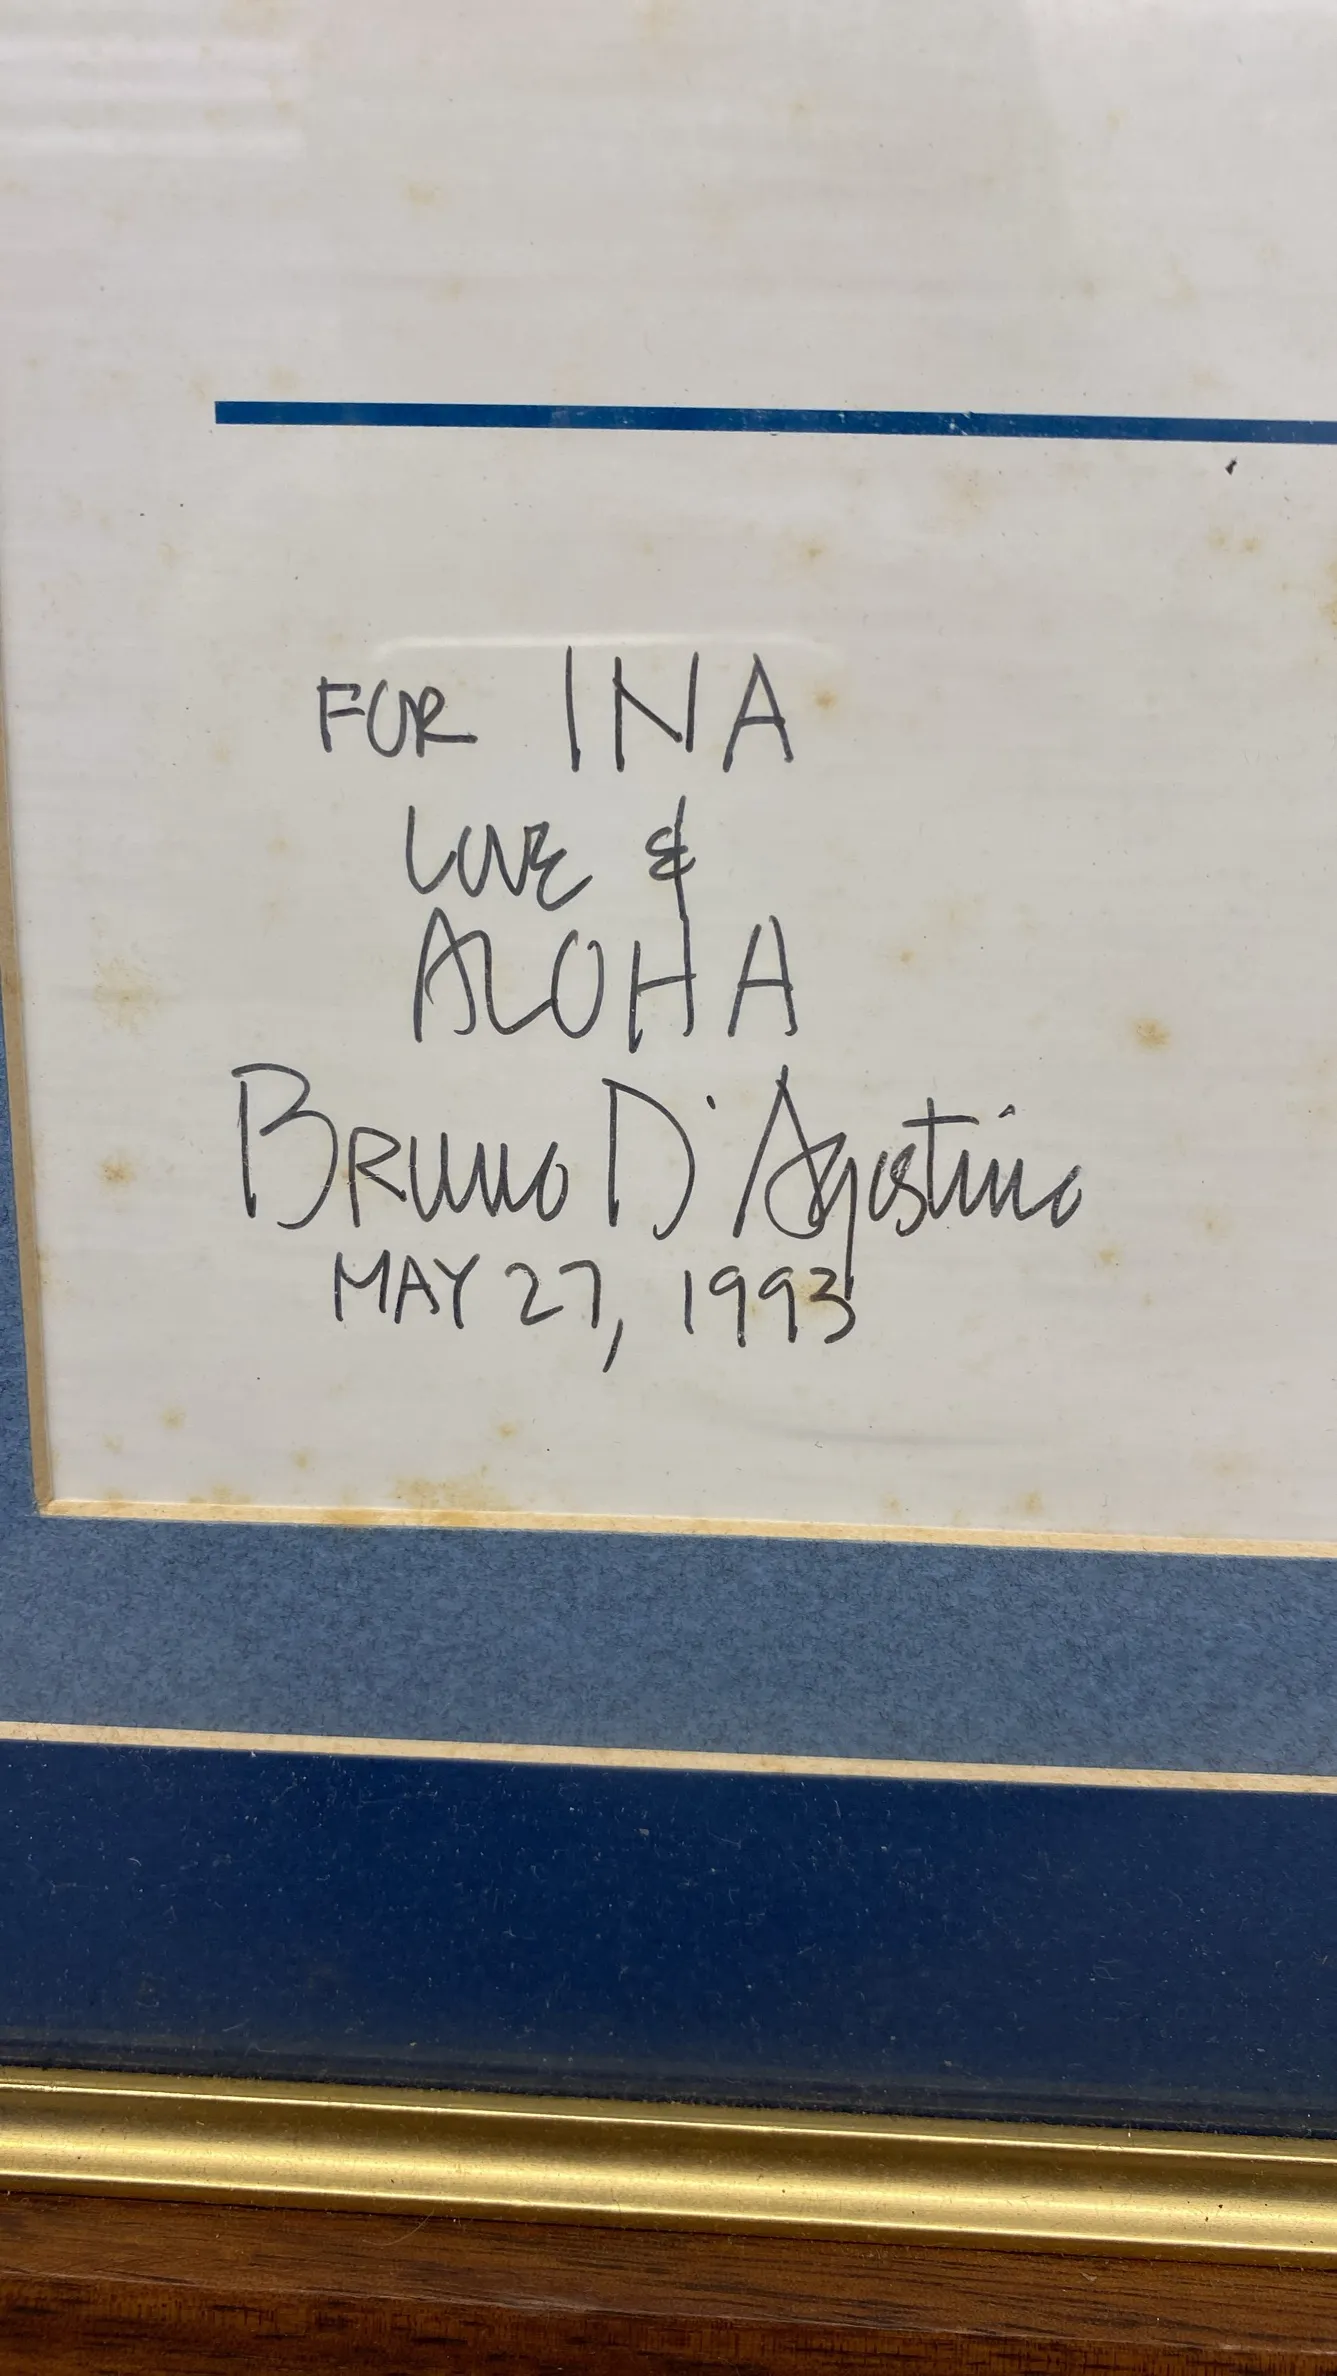 FOR INA
LOVE &
ALOHA
BRUNO D'Agostino
MAY 27, 1993